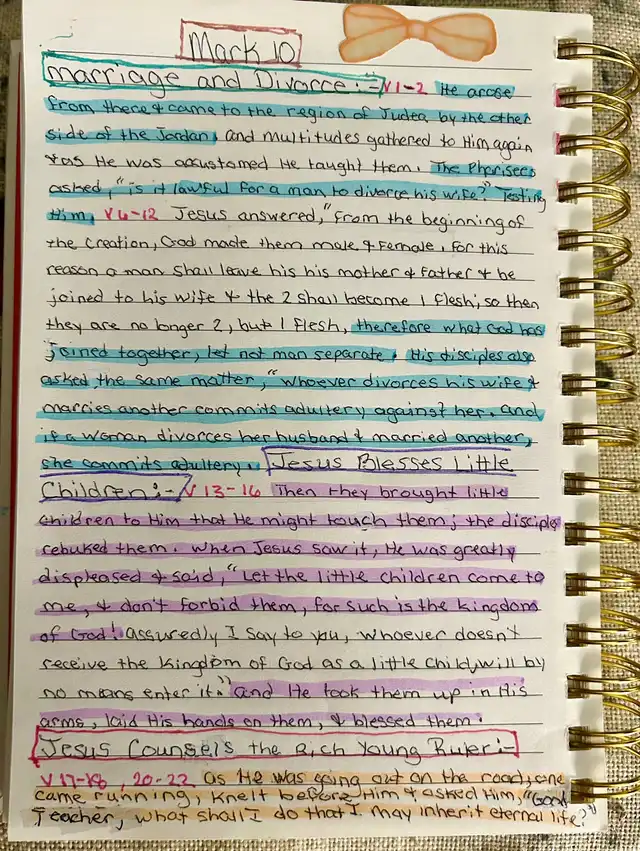 Mark 10
marriage and Divorce:- V1-2 He arose
from there & came to the region of Judea by the other
side of the Jordan, and multitudes gathered to Him again
& as He was accustomed He taught them. The Pharisees
asked, "is it lawful for a man to divorce his wife?" Testing
Him, V6-12 Jesus answered, "From the beginning of
the creation, God made them male & female. For this
reason a man shall leave his his mother & father & be
joined to his wife & the 2 shall become 1 flesh; so then
they are no longer 2, but 1 flesh, therefore what God has
joined together, let not man separate. His disciples also
asked the same matter, "whoever divorces his wife &
marries another commits adultery against her. And
if a woman divorces her husband & married another,
she commits adultery. Jesus Blesses Little
Children:- V 13-16 Then they brought little
children to Him that He might touch them; the disciples
rebuked them. When Jesus saw it, He was greatly
displeased & said, "Let the little children come to
me, & don't forbid them, for such is the kingdom
of God! assuredly I say to you, whoever doesn't
receive the kingdom of God as a little child, will by
no means enter it." and He took them up in His
arms, laid His hands on them, & blessed them.
Jesus Counsels the Rich Young Ruler:-
V 17-18, 20-22 as He was going out on the road, one
came running, knelt before Him & asked Him, "Good
Teacher, what shall I do that I may inherit eternal life?"